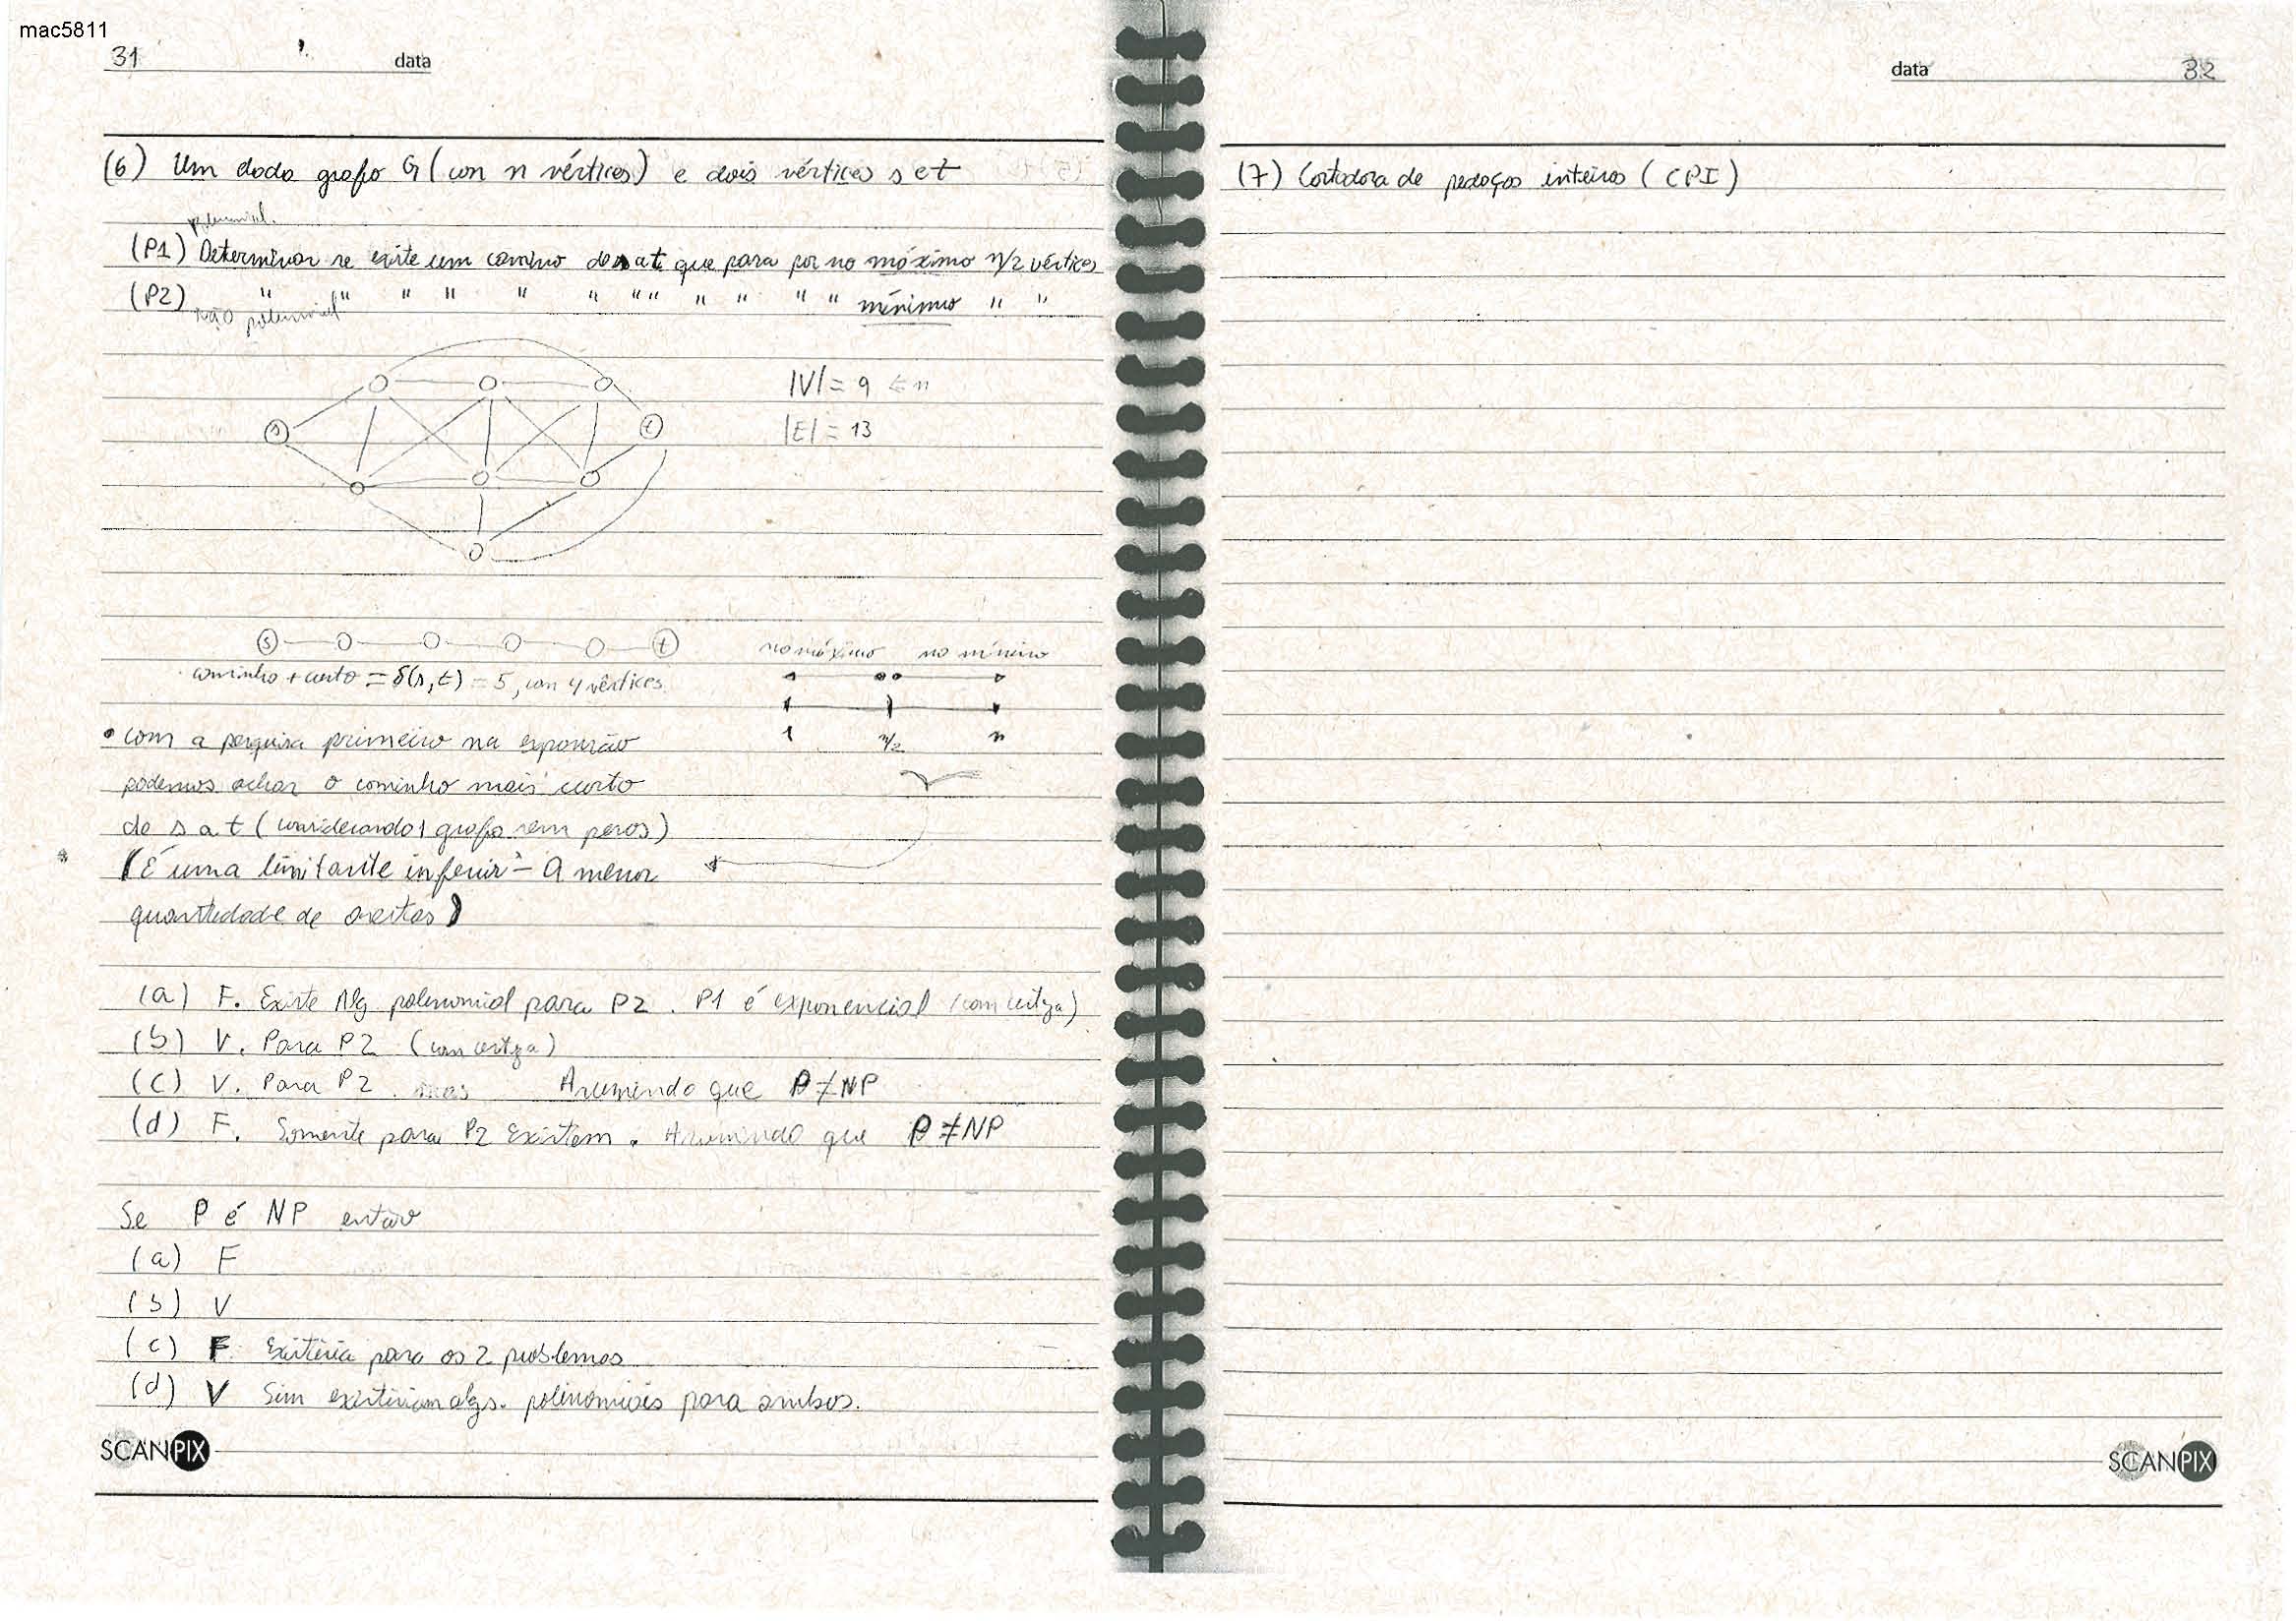 mac5811
31
data
(6) Um dado grafo G (con n vértices) e dois vértices s e t
polinomial.
(P1) Determinar se existe um camino de s a t que para por no máximo n/2 vértices
(P2) " " " " " " " " " " " " mínimo " "
não polinomial
|V| = 9 ← n
|E| = 13
s t
s t
caminho + curto = δ(s,t) = 5, con 4 vértices.
no máximo no mínimo
1 n/2 n
• com a pesquisa primeiro na expansão
podemos achar o caminho mais curto
de s a t (considerando grafo sem pesos)
(É uma limitante inferior - A menor
quantidade de arestas)
(a) F. Existe Alg polinomial para P2. P1 é exponencial (com certeza)
(b) V. Para P2 (con certeza)
(c) V. Para P2 mas Assumindo que P ≠ NP
(d) F. Somente para P2 Existem. Assumindo que P ≠ NP
Se P é NP entao
(a) F
(b) V
(c) F Existiria para os 2 problemas
(d) V Sim existiriam algs. polinomiais para ambos.
SCANPIX
data
32
(7) Cortadora de pedaços inteiros (CPI)
SCANPIX